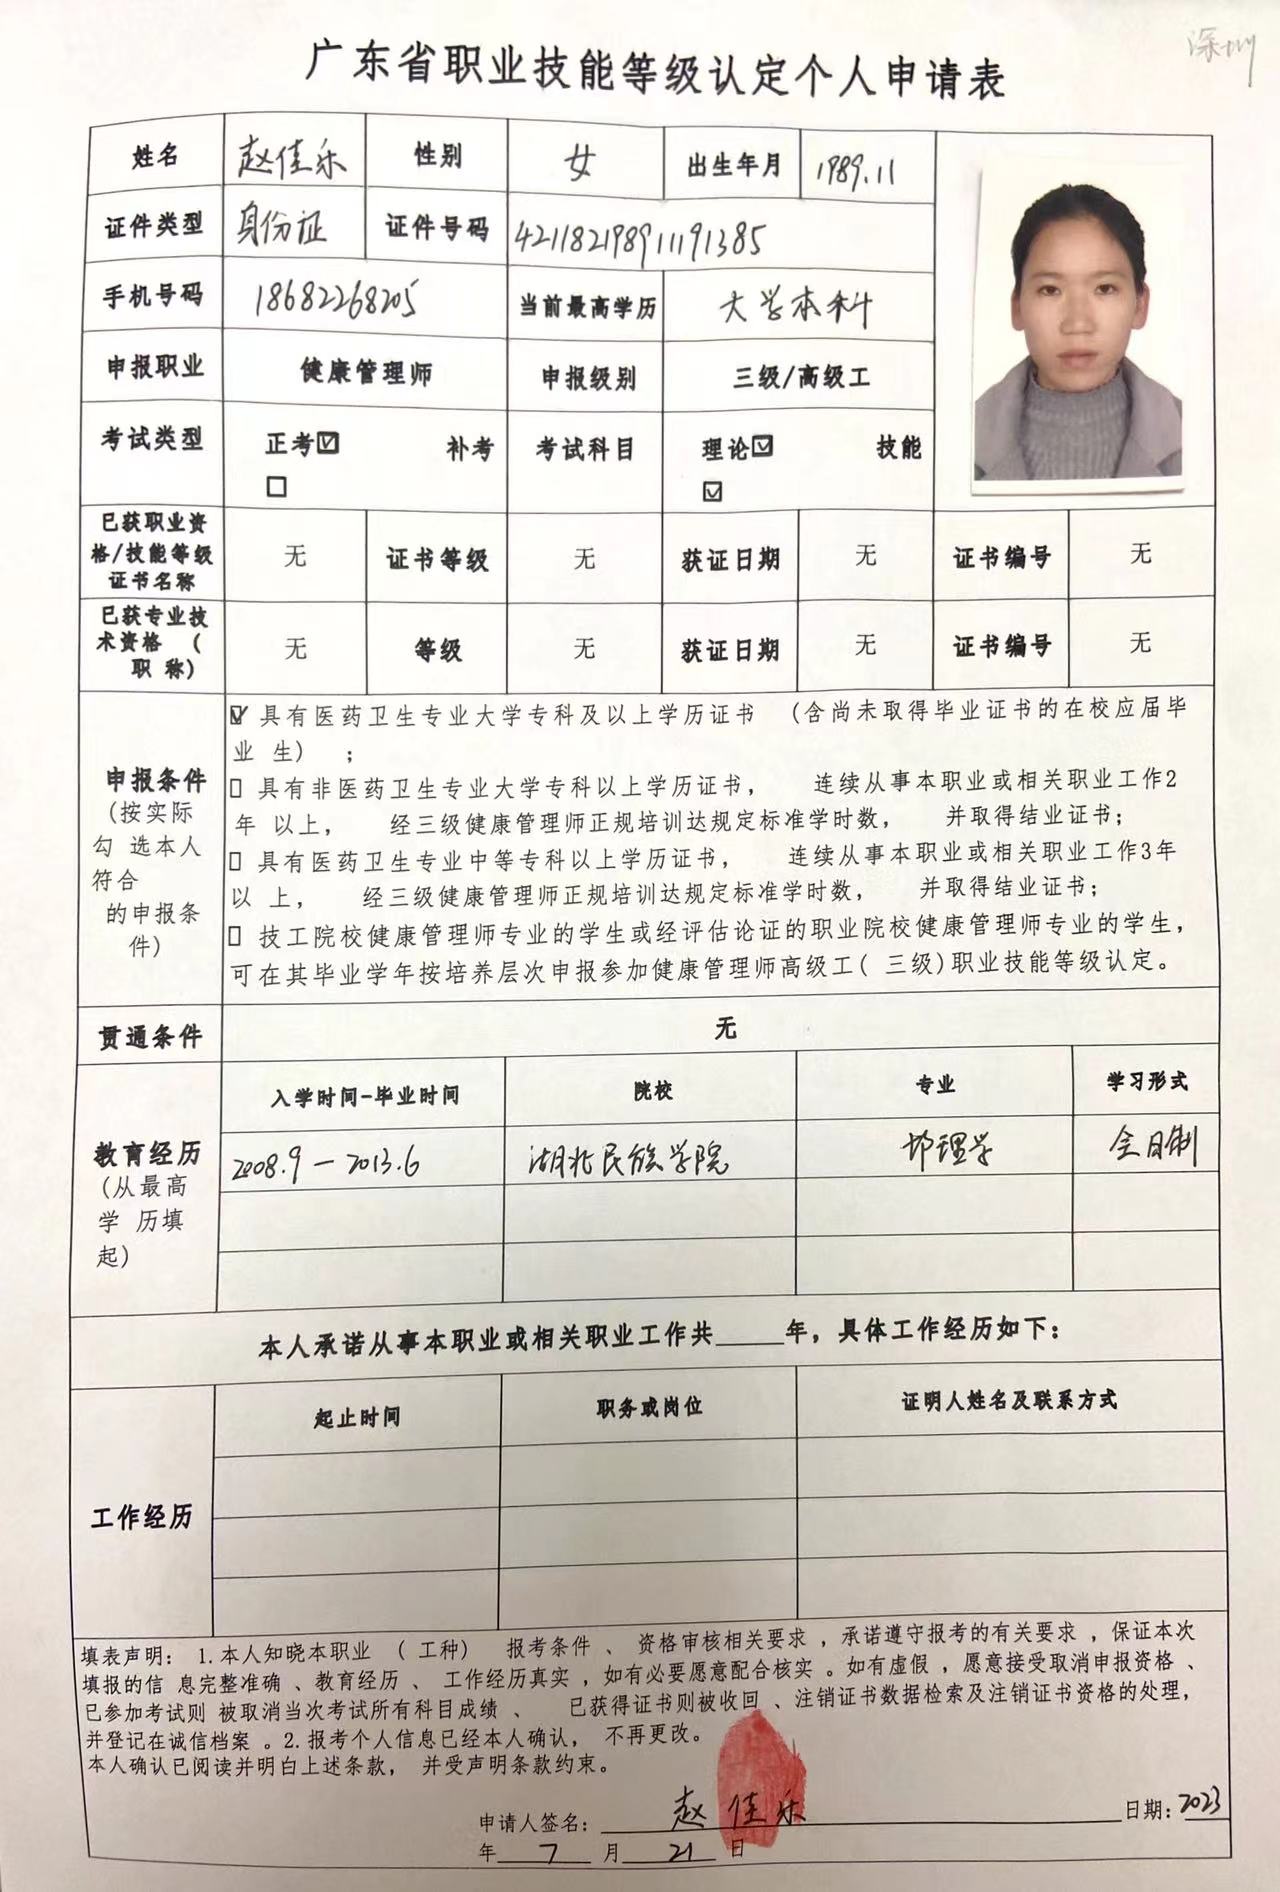 深圳
广东省职业技能等级认定个人申请表
姓名 赵佳乐 性别 女 出生年月 1989.11
证件类型 身份证 证件号码 421182198911191385
手机号码 18682268205 当前最高学历 大学本科
申报职业 健康管理师 申报级别 三级/高级工
考试类型 正考☑ 补考 考试科目 理论☑ 技能
□ ☑
已获职业资
格/技能等级
证书名称 无 证书等级 无 获证日期 无 证书编号 无
已获专业技
术资格 (
职 称) 无 等级 无 获证日期 无 证书编号 无
申报条件
(按实际
勾 选本人
符合
的申报条
件)
☑ 具有医药卫生专业大学专科及以上学历证书 (含尚未取得毕业证书的在校应届毕
业 生) ;
□ 具有非医药卫生专业大学专科以上学历证书, 连续从事本职业或相关职业工作2
年 以上, 经三级健康管理师正规培训达规定标准学时数, 并取得结业证书;
□ 具有医药卫生专业中等专科以上学历证书, 连续从事本职业或相关职业工作3年
以 上, 经三级健康管理师正规培训达规定标准学时数, 并取得结业证书;
□ 技工院校健康管理师专业的学生或经评估论证的职业院校健康管理师专业的学生,
可在其毕业学年按培养层次申报参加健康管理师高级工( 三级)职业技能等级认定。
贯通条件 无
教育经历
(从最高
学 历填
起)
入学时间-毕业时间 院校 专业 学习形式
2008.9-2013.6 湖北民族学院 护理学 全日制
本人承诺从事本职业或相关职业工作共_____年, 具体工作经历如下:
工作经历 起止时间 职务或岗位 证明人姓名及联系方式
填表声明: 1.本人知晓本职业 ( 工种) 报考条件 、 资格审核相关要求 , 承诺遵守报考的有关要求 , 保证本次
填报的信 息完整准确 、教育经历 、 工作经历真实 , 如有必要愿意配合核实 。如有虚假 , 愿意接受取消申报资格 、
已参加考试则 被取消当次考试所有科目成绩 、 已获得证书则被收回 、注销证书数据检索及注销证书资格的处理,
并登记在诚信档案 。2.报考个人信息已经本人确认, 不再更改。
本人确认已阅读并明白上述条款, 并受声明条款约束。
申请人签名: 赵佳乐 日期: 2023
年 7 月 21 日